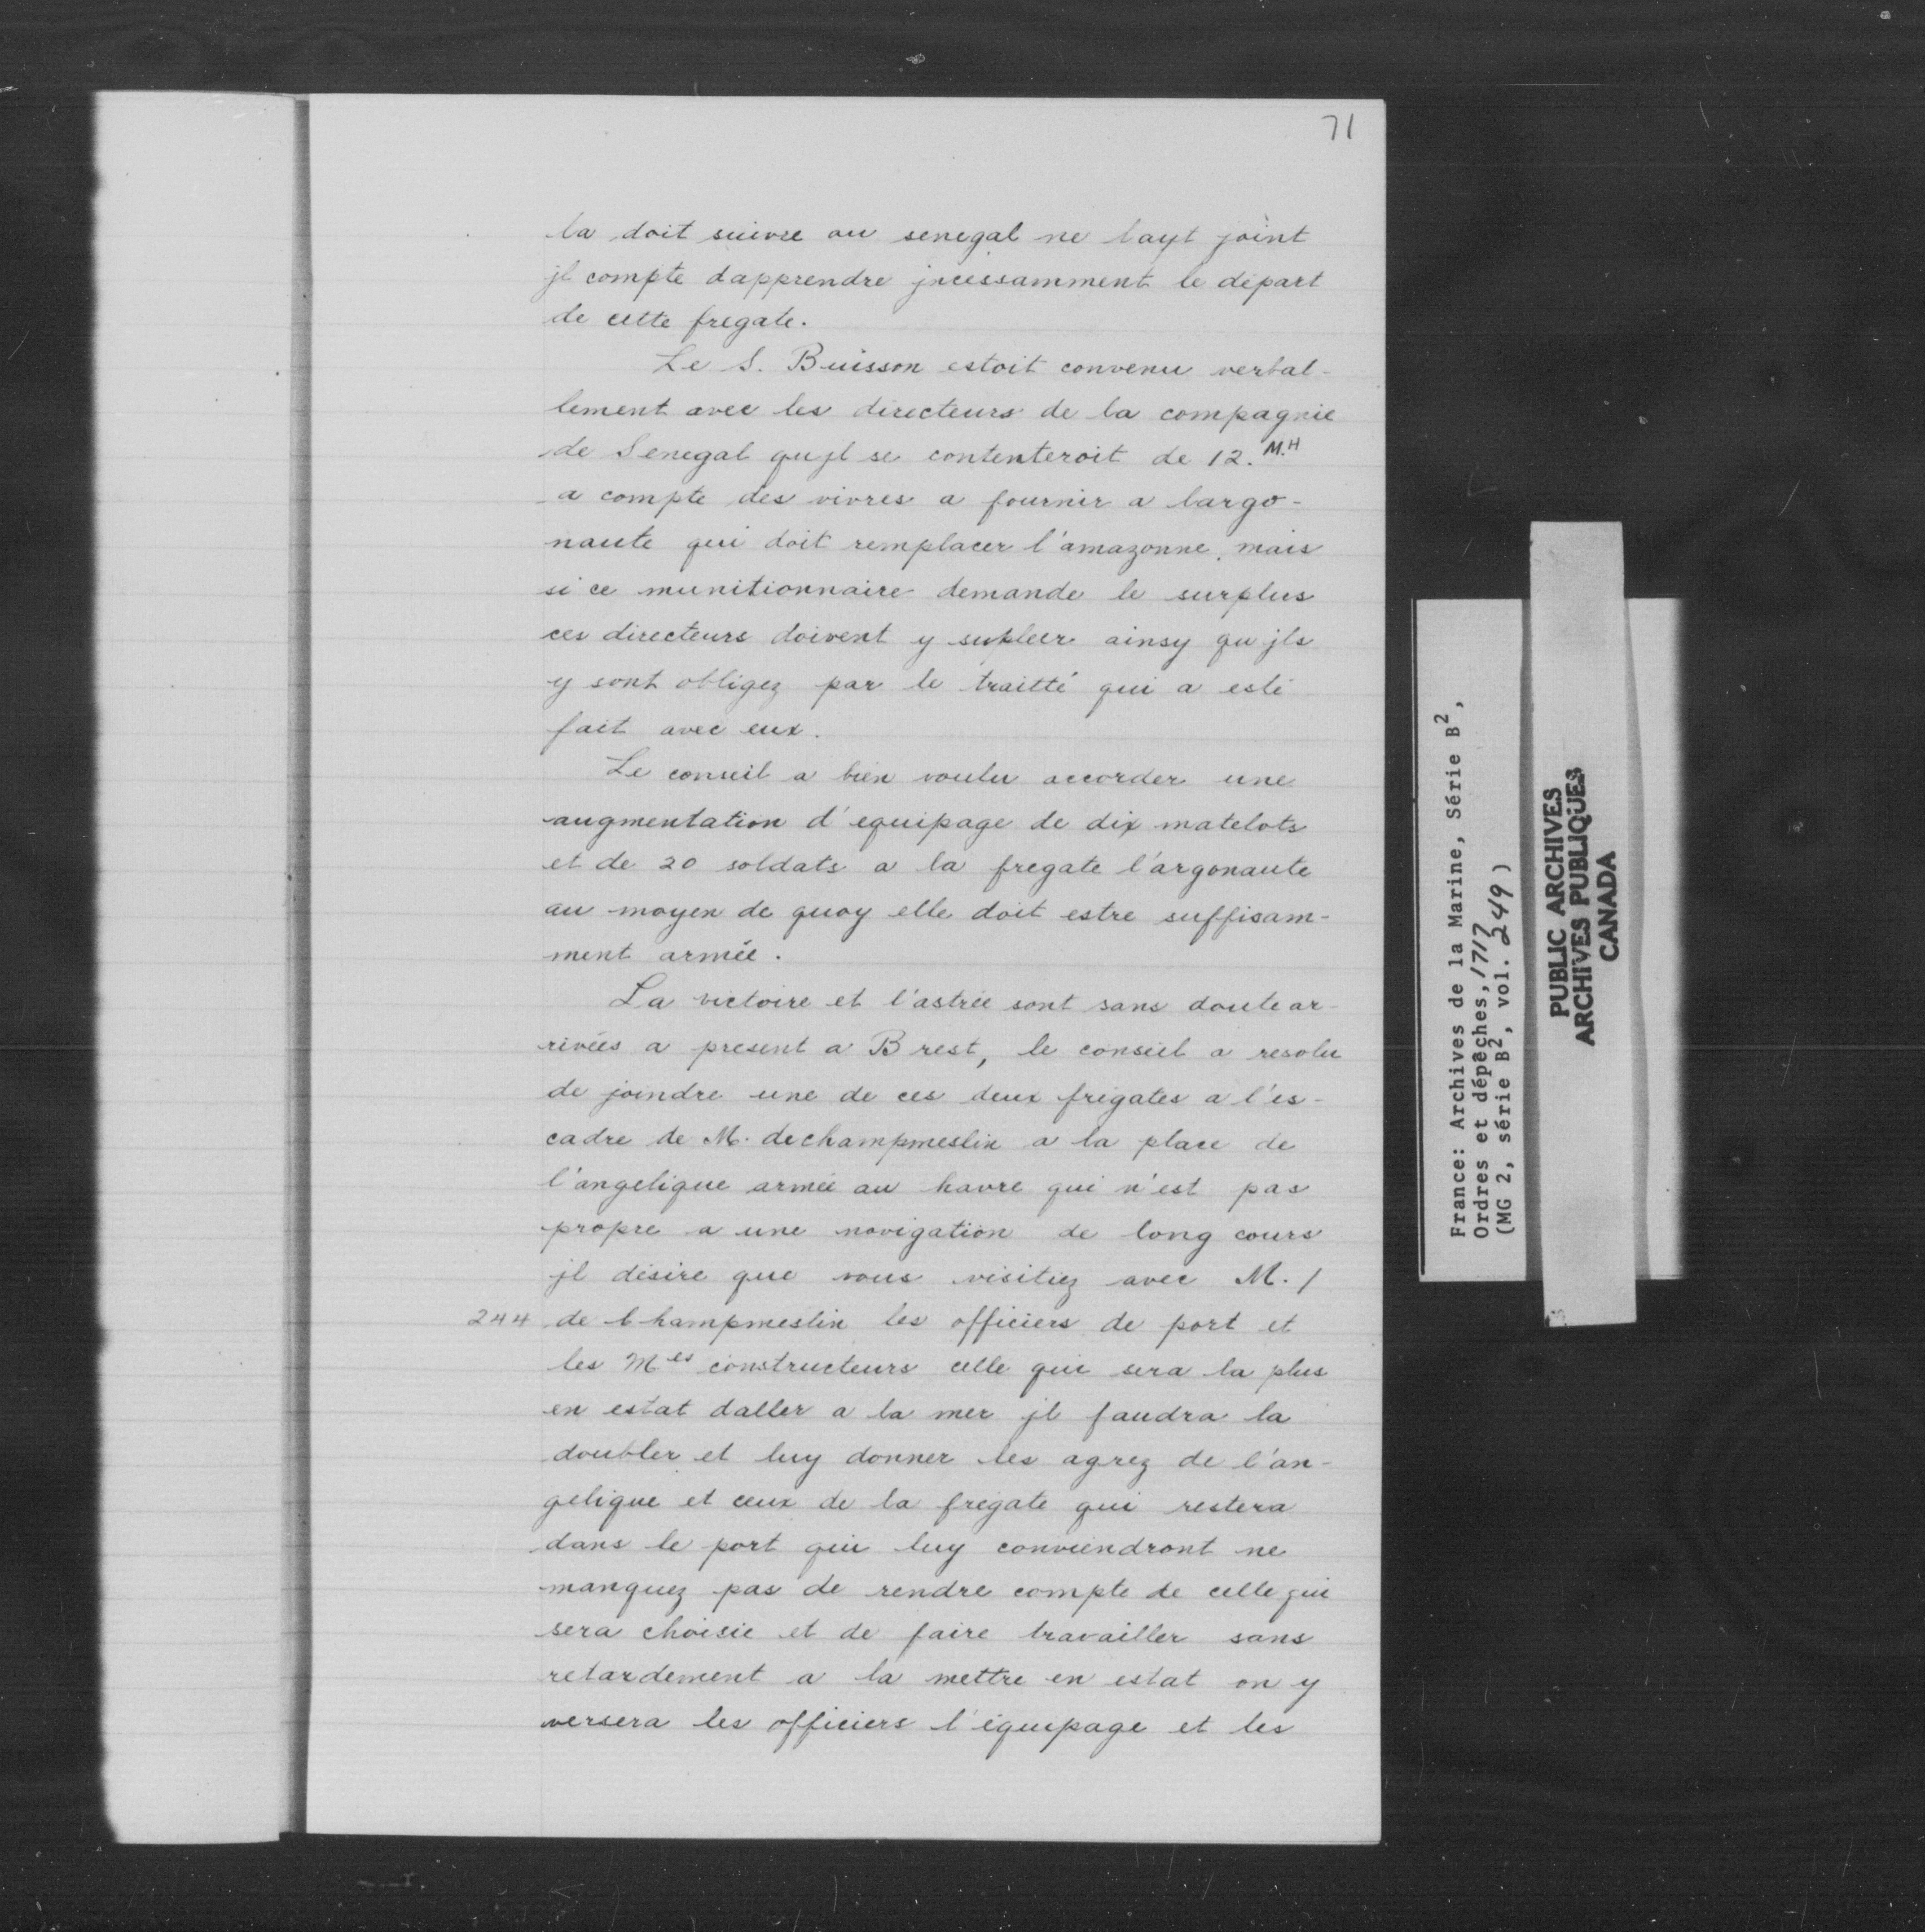 71
la doit suivre au senegal ne layt joint
jl compte dapprendre jncessamment le départ
de cette fregate.
Le S. Buisson estoit convenu verbal-
lement avec les directeurs de la compagnie
de Senegal qujl se contenteroit de 12. M.H
a compte des vivres a fournir a largo-
naute qui doit remplacer l'amazonne, mais
si ce munitionnaire demande le surplus
ces directeurs doivent y supleer ainsy qu jls
y sont obligez par le traitté qui a esté
fait avec eux.
Le conseil a bien voulu accorder une
augmentation d'equipage de dix matelots
et de 20 soldats a la fregate l'argonaute
au moyen de quoy elle doit estre suffisam-
ment armée.
La victoire et l'astrée sont sans doute ar-
rivées a present a Brest, le conseil a resolu
de joindre une de ces deux frigates a l'es-
cadre de M. dechampmeslin a la place de
l'angelique armée au havre qui n'est pas
propre a une navigation de long cours
jl désire que vous visitiez avec M. /
244 de Champmeslin les officiers de port et
les Mes constructeurs celle qui sera la plus
en estat daller a la mer jl faudra la
doubler et luy donner les agrez de l'an-
gelique et ceux de la fregate qui restera
dans le port qui luy conviendront ne
manquez pas de rendre compte de celle qui
sera choisie et de faire travailler sans
retardement a la mettre en estat on y
versera les officiers l'équipage et les
France: Archives de la Marine, Série B2,
Ordres et dépêches, 1717
(MG 2, série B2, vol. 249)
PUBLIC ARCHIVES
ARCHIVES PUBLIQUES
CANADA